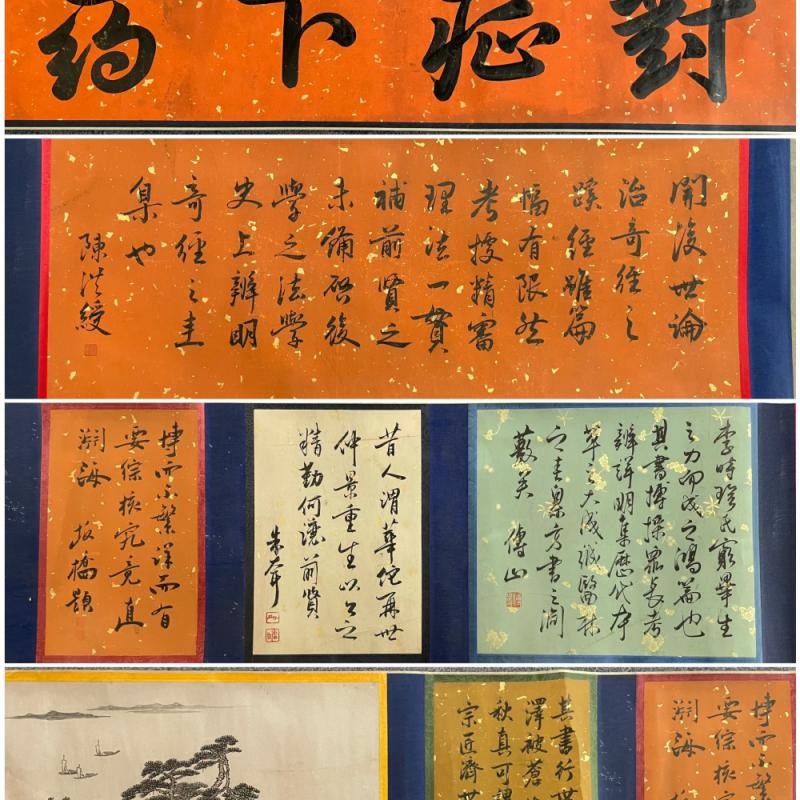 對症下药
開後世論
治奇經之
蹊徑雖篇
幅有限然
考據精審
理法一貫
補前賢之
未備啓後
學之法學
史上辨明
奇經之圭
臬也
陳洪綬
李時珍氏窮畢生
之力而成之鴻篇也
其書搏採衆長考
辨詳明集歷代本
草之大成誠醫林
之圭臬方書之淵
藪矣 傅山
昔人謂華佗再世
仲景重生以公之
精勤何讓前賢
朱耷
博而不繁詳而有
要綜核究竟直
淵海 板橋題
博而不繁
要綜核
淵海
其書行世
澤被蒼
秋真可謂
宗匠濟世